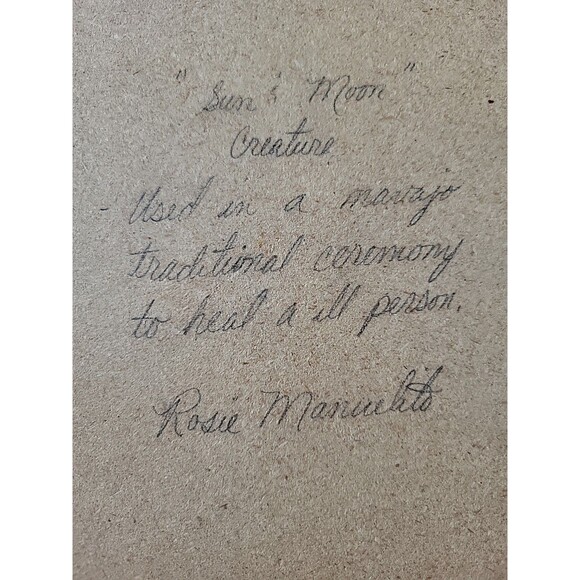 "Sun & Moon"
Creature
- Used in a navajo
traditional ceremony
to heal a ill person.
Rosie Manuelito